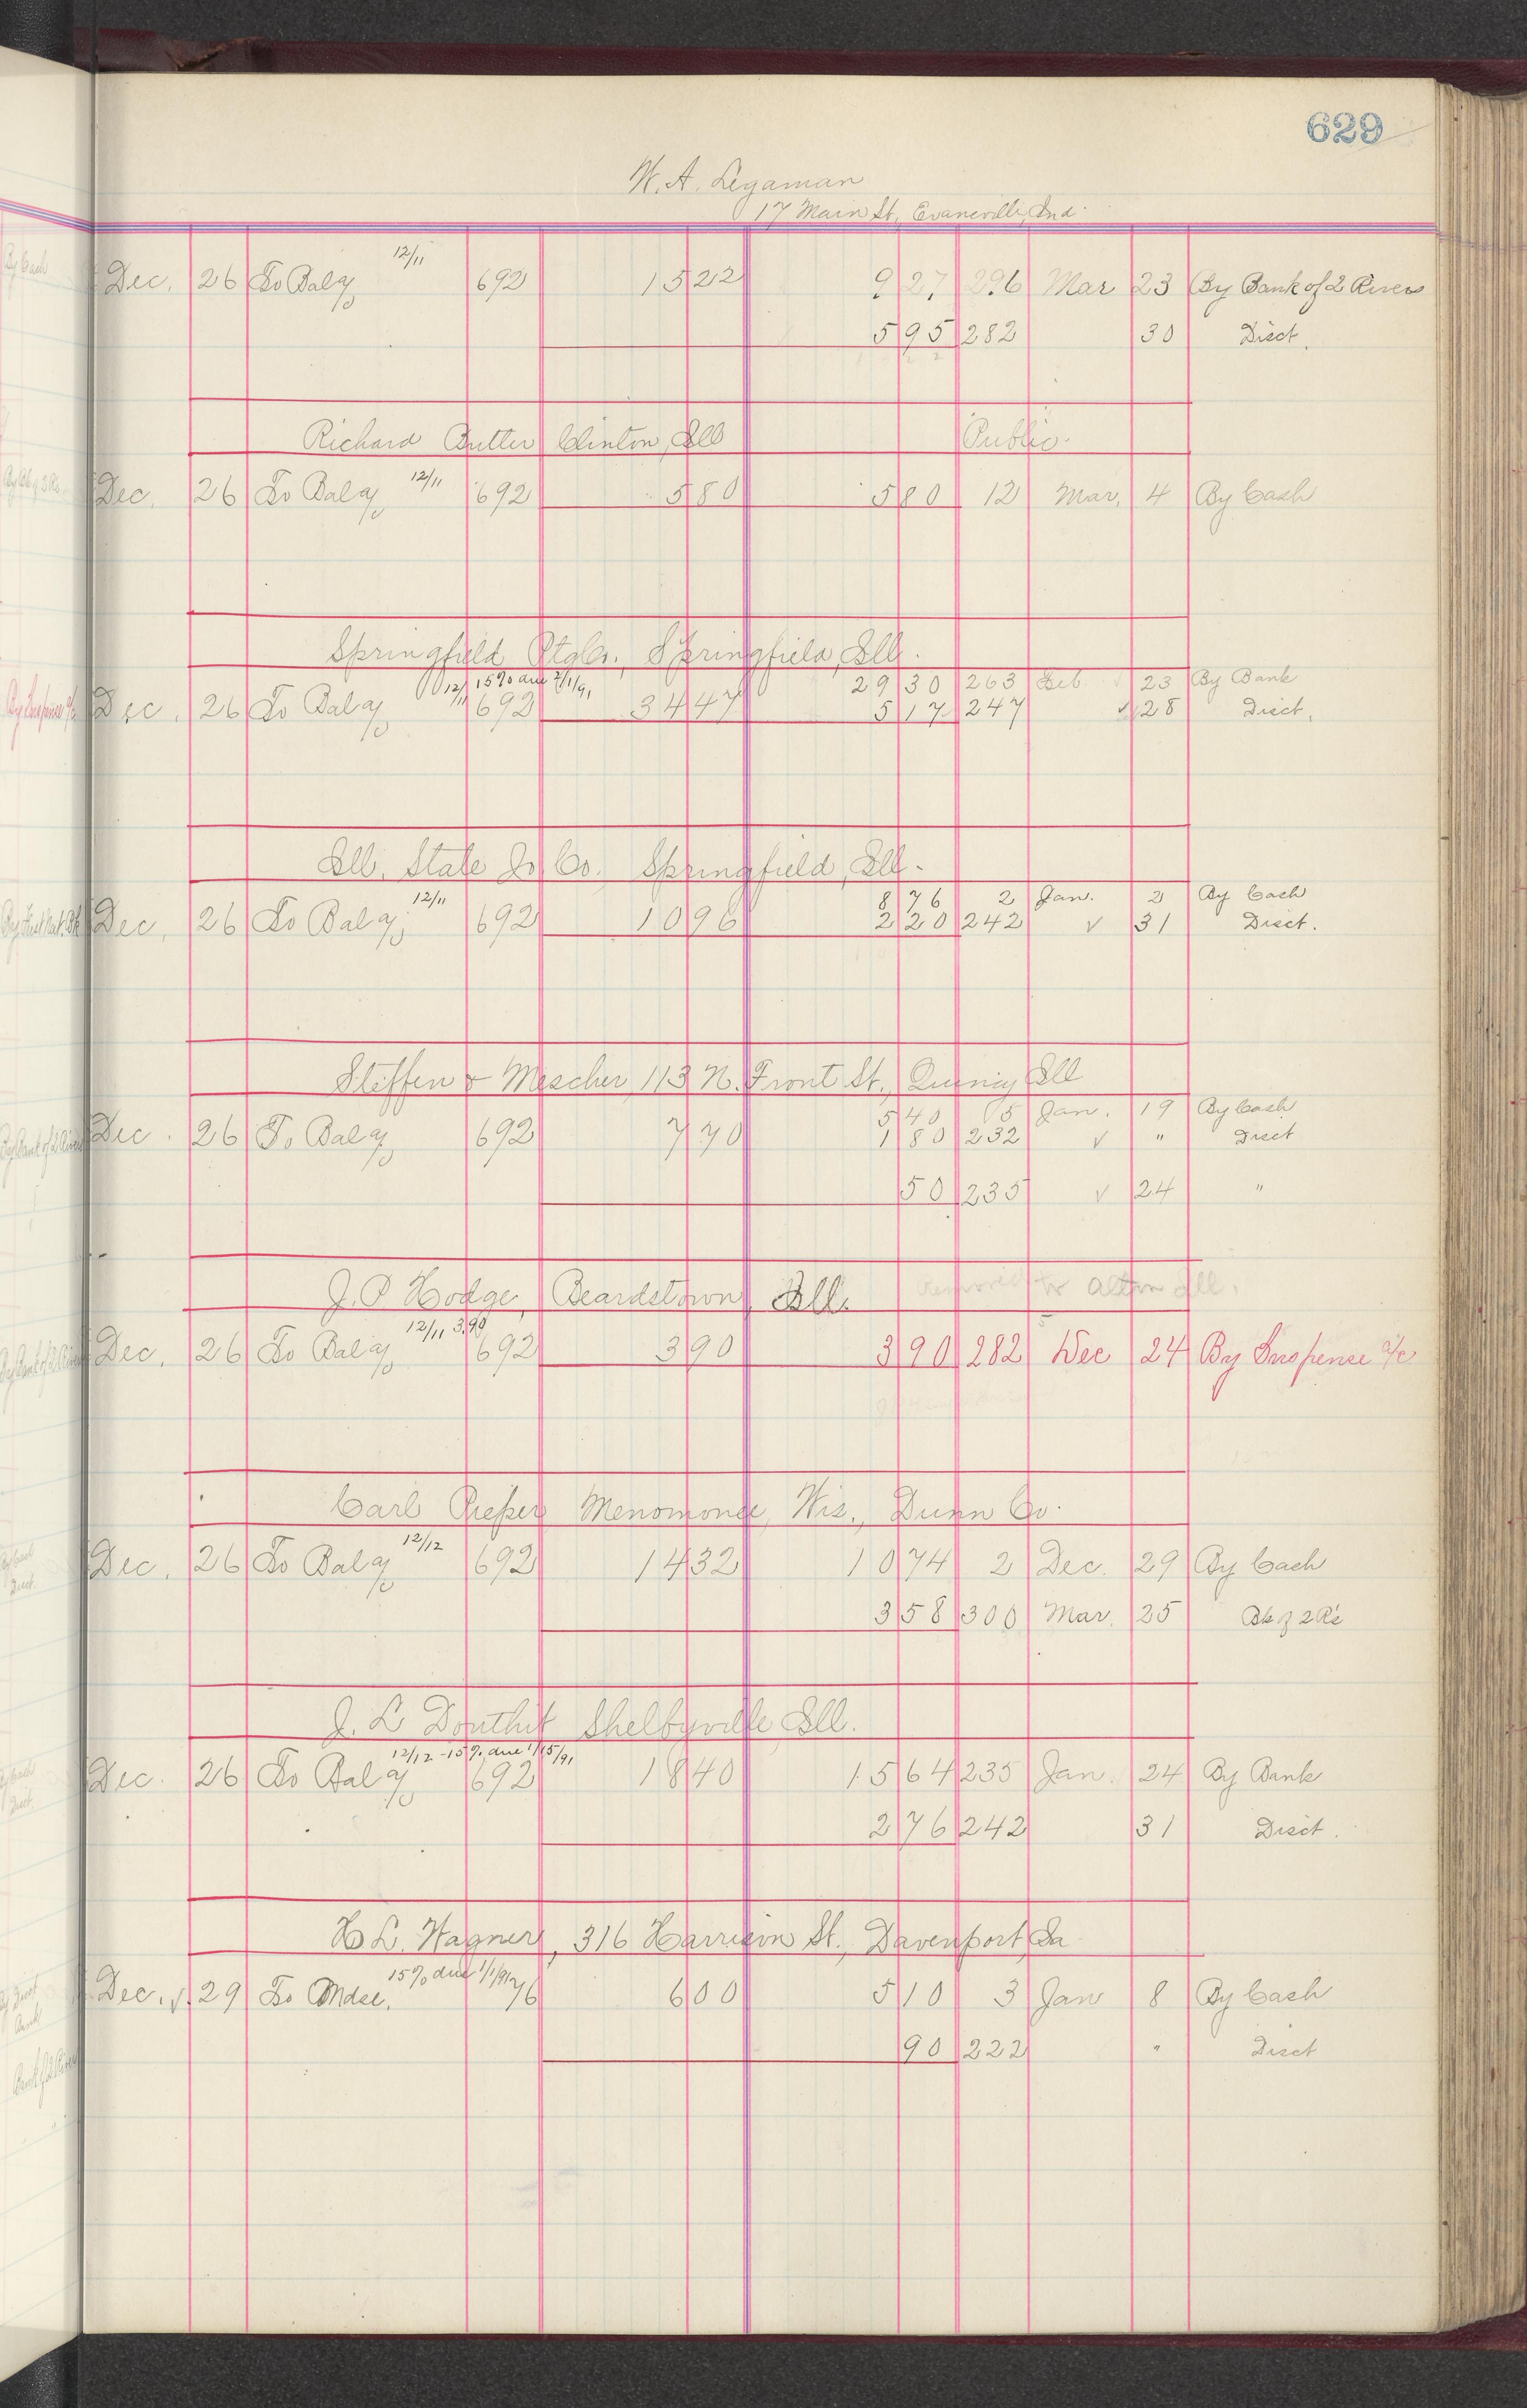 629
W. A. Legaman
17 Main St, Evansville, Ind.
12/11
Dec. 26 To Bal a/c 692 1522 9 27 296 Mar 23 By Bank of 2 Rivers
5 95 282 30 Disct.
Richard Butter Clinton, Ill Public
Dec. 26 To Bal a/c 12/11 692 580 580 12 Mar. 4 By Cash
Springfield Ptg Co., Springfield, Ill.
12/11 15% due 2/1/91 29 30 263 Feb 23 By Bank
Dec. 26 To Bal a/c 692 3447 5 17 247 ✓ 28 Disct.
Ill. State Jo. Co. Springfield, Ill.
12/11 8 76 2 Jan. 2 By Cash
Dec. 26 To Bal a/c 692 1096 2 20 242 ✓ 31 Disct.
Steffen & Mescher, 113 N. Front St., Quincy Ill
5 40 5 Jan. 19 By Cash
Dec. 26 To Bal a/c 692 770 1 80 232 ✓ " Disct
50 235 ✓ 24 "
J. P Hodge, Beardstown, Ill. Removed to Alton Ill.
12/11 3.90
Dec. 26 To Bal a/c 692 390 3 90 282 Dec 24 By Suspense a/c
Carl Pieper Menomonee, Wis., Dunn Co.
12/12
Dec. 26 To Bal a/c 692 1432 10 74 2 Dec. 29 By Cash
3 58 300 Mar. 25 Bk of 2 R's
J. L Douthit Shelbyville Ill.
12/12 - 15% due 1/15/91
Dec. 26 To Bal a/c 692 1840 15 64 235 Jan. 24 By Bank
2 76 242 31 Disct.
H L. Wagner, 316 Harrison St., Davenport, Ia
15% due 1/1/91
Dec. ✓ 29 To Mdse. 76 600 5 10 3 Jan 8 By Cash
90 222 " Disct